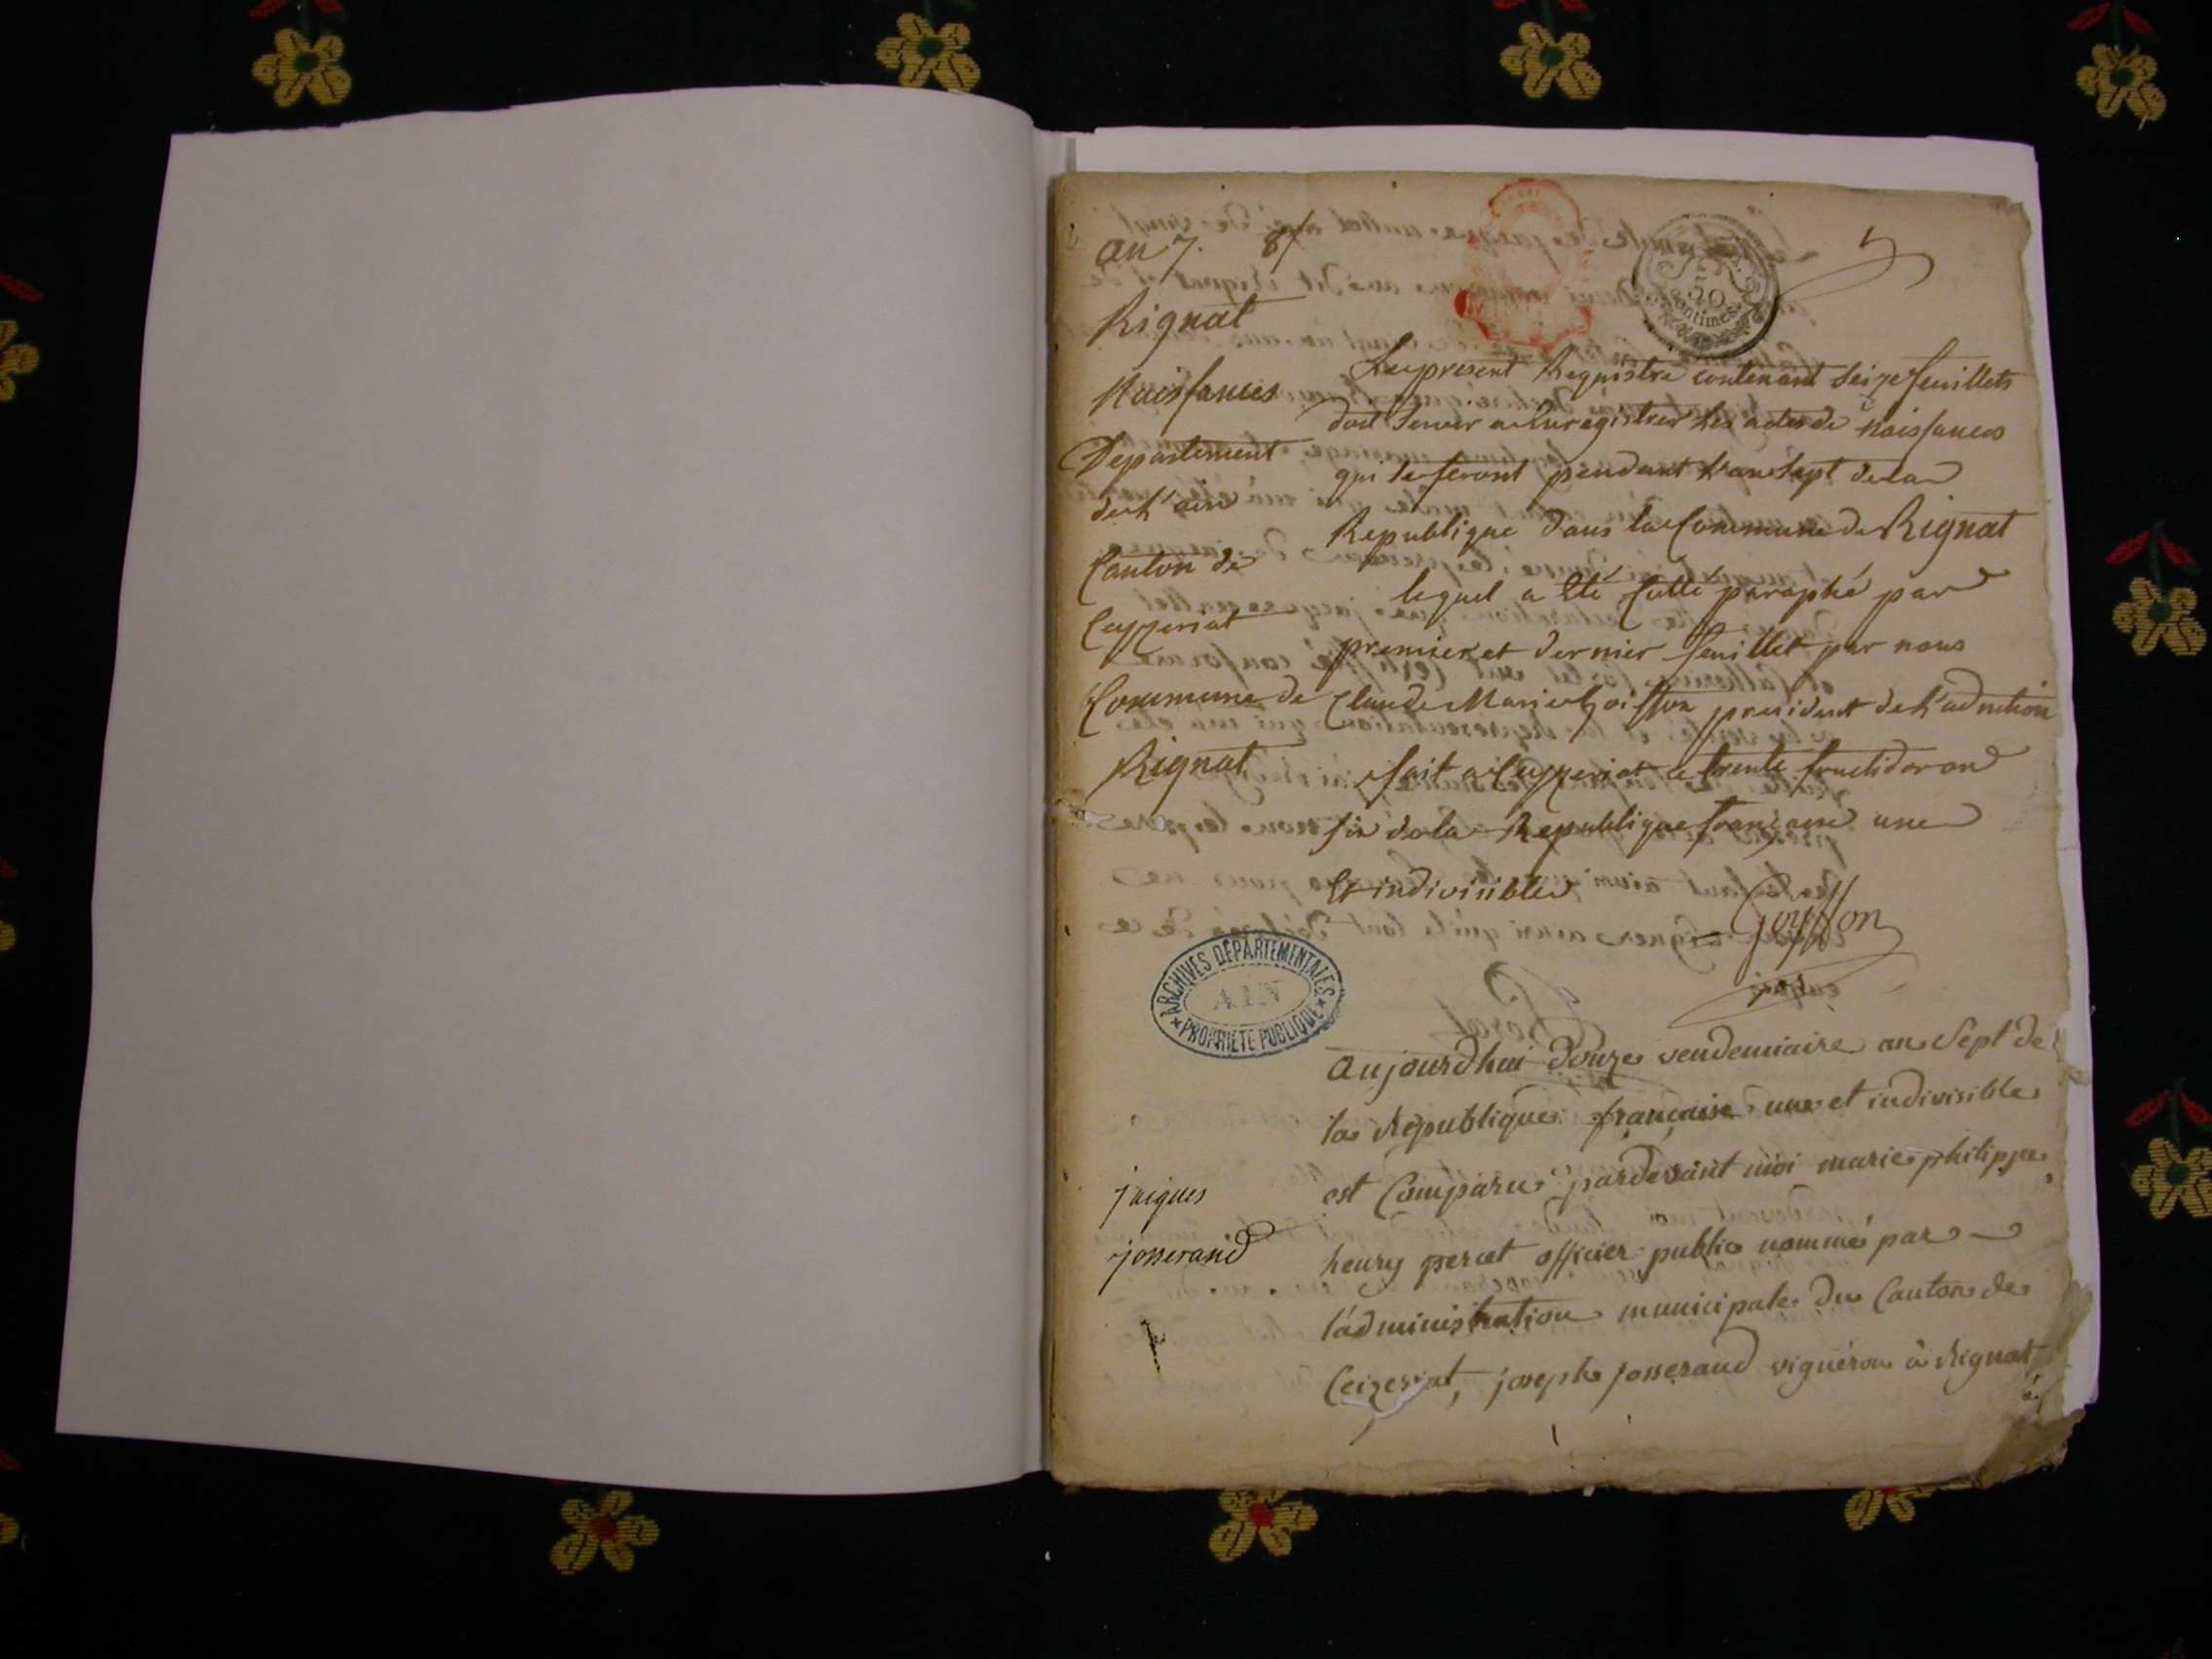 an 7. 87
50
Centimes
Rignat
Naissances
Departement
de L'ain
Canton de
Ceyzeriat
Commune de
Rignat
Le present Reguistre contenant Seize feuillets
doit Servir a Enregistrer Les actes de Naissances
qui se feront pendant L'an Sept de la
Republique dans la Commune de Rignat
lequel a Eté Cotté paraphé par
premier et dernier feuillet par nous
Claude Marie Goiffon president de L'adm̄tion
fait a Ceyzeriat le trente fructidor an
Six de la Republique francaise une
Et indivisible
Goyffon
ARCHIVES DÉPARTEMENTALES
AIN
PROPRIÉTÉ PUBLIQUE
jacques
josserand
aujourdhui douze vendemiaire an Sept de
la Republique française une et indivisible
est Comparu pardevant moi marie philippe
henry peret officier public nommé par
l'administration municipale du Canton de
Ceizeriat, joseph josserand vigneron à Rignat